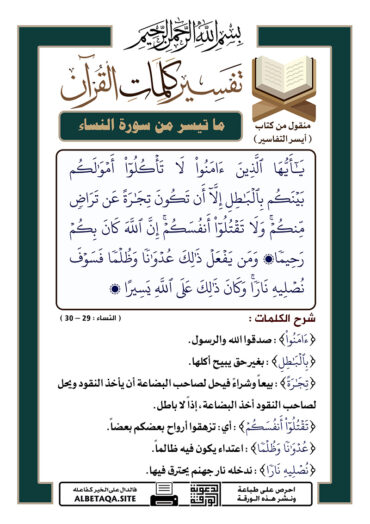 بسم الله الرحمن الرحيم
تفسير كلمات القرآن
ما تيسر من سورة النساء
منقول من كتاب
( أيسر التفاسير )
يَـٰٓأَيُّهَا ٱلَّذِينَ ءَامَنُوا۟ لَا تَأْكُلُوٓا۟ أَمْوَٰلَكُم
بَيْنَكُم بِٱلْبَـٰطِلِ إِلَّآ أَن تَكُونَ تِجَـٰرَةً عَن تَرَاضٍ
مِّنكُمْ ۚ وَلَا تَقْتُلُوٓا۟ أَنفُسَكُمْ ۚ إِنَّ ٱللَّهَ كَانَ بِكُمْ
رَحِيمًا ۞ وَمَن يَفْعَلْ ذَٰلِكَ عُدْوَٰنًا وَظُلْمًا فَسَوْفَ
نُصْلِيهِ نَارًا ۚ وَكَانَ ذَٰلِكَ عَلَى ٱللَّهِ يَسِيرًا ۞
شرح الكلمات :
( النساء : 29 – 30 )
﴿ءَامَنُوا۟﴾ : صدقوا الله والرسول.
﴿بِٱلْبَـٰطِلِ﴾ : بغير حق يبيح أكلها.
﴿تِجَـٰرَةً﴾ : بيعاً وشراءً فيحل لصاحب البضاعة أن يأخذ النقود ويحل
لصاحب النقود أخذ البضاعة، إذاً لا باطل.
﴿تَقْتُلُوٓا۟ أَنفُسَكُمْ﴾ : أي: تزهقوا أرواح بعضكم بعضاً.
﴿عُدْوَٰنًا وَظُلْمًا﴾ : اعتداء يكون فيه ظالماً.
﴿نُصْلِيهِ نَارًا﴾ : ندخله نار جهنم يحترق فيها.
احرص على طباعة
ونشر هذه الورقة
الدعوية
الورقة
فالدال على الخير كفاعله
ALBETAQA.SITE